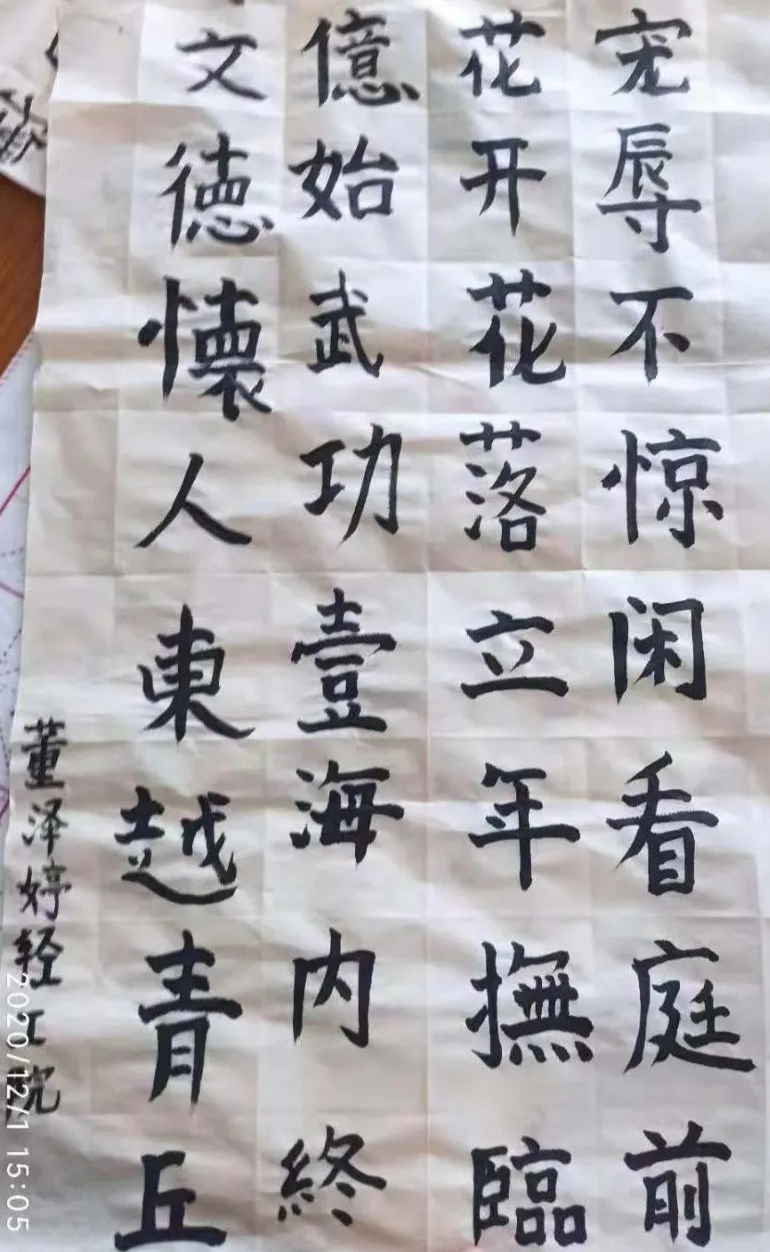 宠辱不惊闲看庭前
花开花落立年撫臨
億始武功壹海内終
文德懷人東越青丘
董泽婷轻工院
2020/12/1 15:05